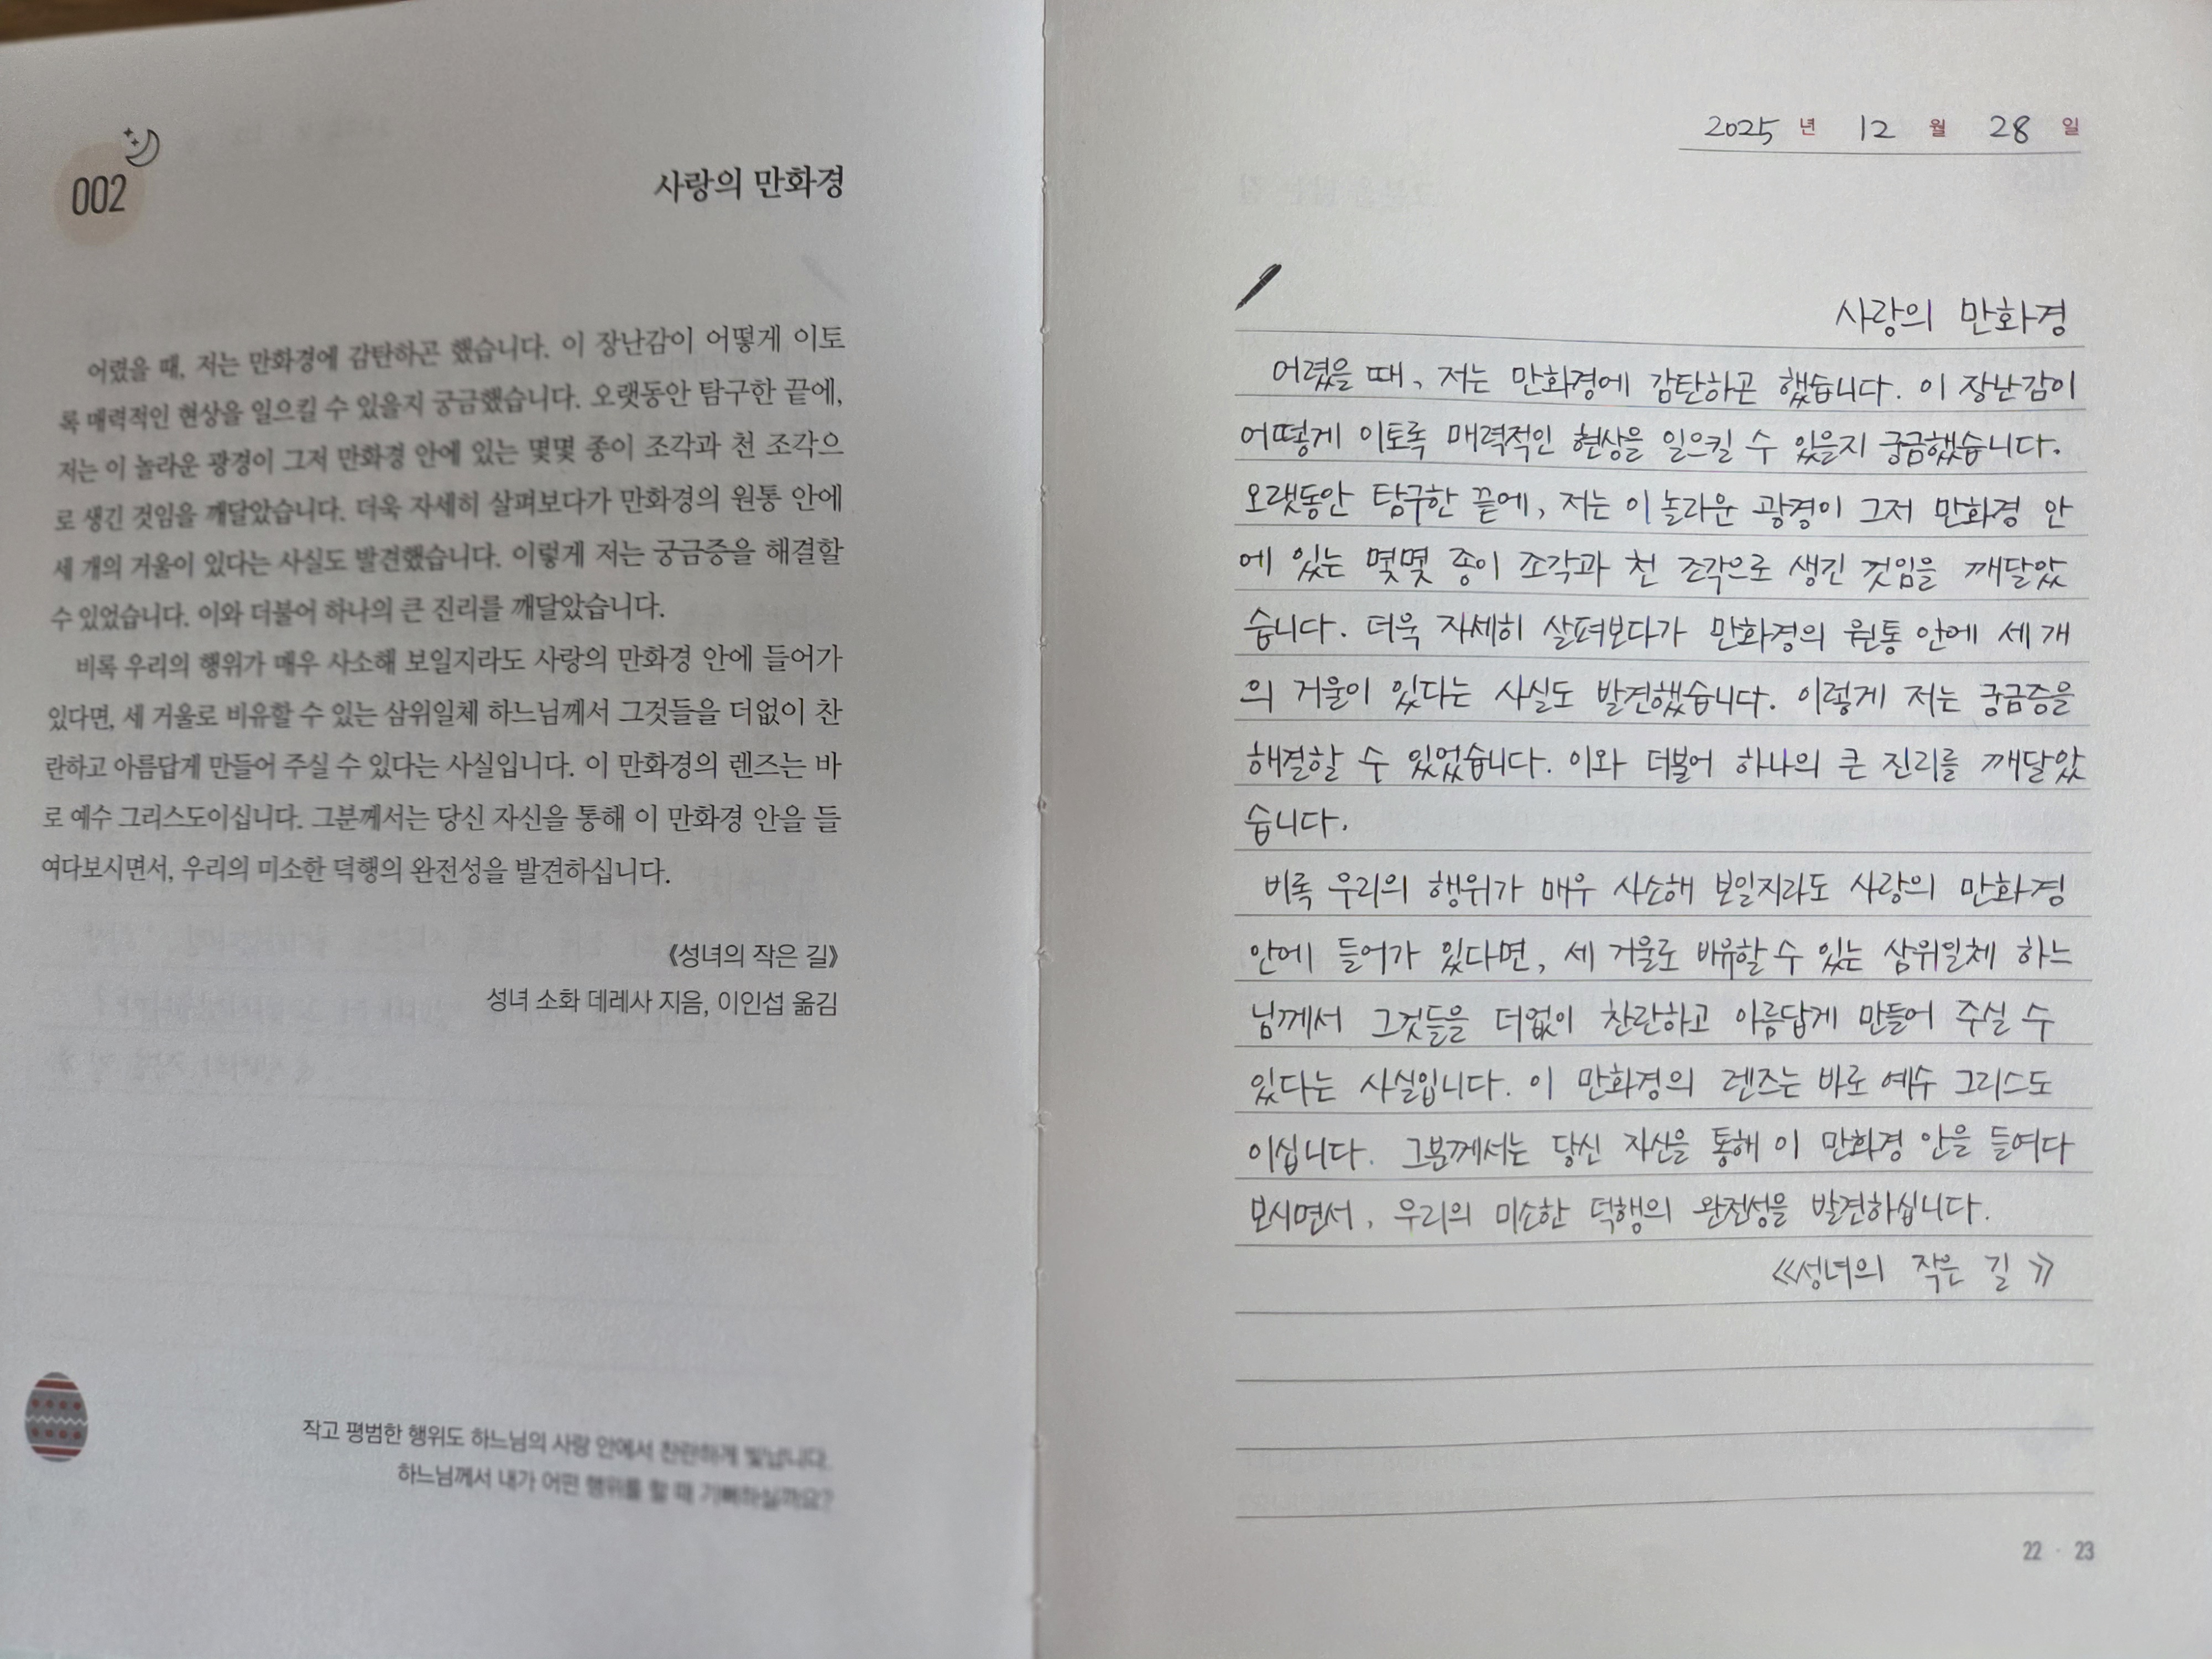 002
사랑의 만화경
어렸을 때, 저는 만화경에 감탄하곤 했습니다. 이 장난감이 어떻게 이토
록 매력적인 현상을 일으킬 수 있을지 궁금했습니다. 오랫동안 탐구한 끝에,
저는 이 놀라운 광경이 그저 만화경 안에 있는 몇몇 종이 조각과 천 조각으
로 생긴 것임을 깨달았습니다. 더욱 자세히 살펴보다가 만화경의 원통 안에
세 개의 거울이 있다는 사실도 발견했습니다. 이렇게 저는 궁금증을 해결할
수 있었습니다. 이와 더불어 하나의 큰 진리를 깨달았습니다.
비록 우리의 행위가 매우 사소해 보일지라도 사랑의 만화경 안에 들어가
있다면, 세 거울로 비유할 수 있는 삼위일체 하느님께서 그것들을 더없이 찬
란하고 아름답게 만들어 주실 수 있다는 사실입니다. 이 만화경의 렌즈는 바
로 예수 그리스도이십니다. 그분께서는 당신 자신을 통해 이 만화경 안을 들
여다보시면서, 우리의 미소한 덕행의 완전성을 발견하십니다.
《성녀의 작은 길》
성녀 소화 데레사 지음, 이인섭 옮김
작고 평범한 행위도 하느님의 사랑 안에서 찬란하게 빛납니다.
하느님께서 내가 어떤 행위를 할 때 기뻐하실까요?
2025 년 12 월 28 일
사랑의 만화경
어렸을 때, 저는 만화경에 감탄하곤 했습니다. 이 장난감이
어떻게 이토록 매력적인 현상을 일으킬 수 있을지 궁금했습니다.
오랫동안 탐구한 끝에, 저는 이 놀라운 광경이 그저 만화경 안
에 있는 몇몇 종이 조각과 천 조각으로 생긴 것임을 깨달았
습니다. 더욱 자세히 살펴보다가 만화경의 원통 안에 세 개
의 거울이 있다는 사실도 발견했습니다. 이렇게 저는 궁금증을
해결할 수 있었습니다. 이와 더불어 하나의 큰 진리를 깨달았
습니다.
비록 우리의 행위가 매우 사소해 보일지라도 사랑의 만화경
안에 들어가 있다면, 세 거울로 비유할 수 있는 삼위일체 하느
님께서 그것들을 더없이 찬란하고 아름답게 만들어 주실 수
있다는 사실입니다. 이 만화경의 렌즈는 바로 예수 그리스도
이십니다. 그분께서는 당신 자신을 통해 이 만화경 안을 들여다
보시면서, 우리의 미소한 덕행의 완전성을 발견하십니다.
《성녀의 작은 길》
22 · 23